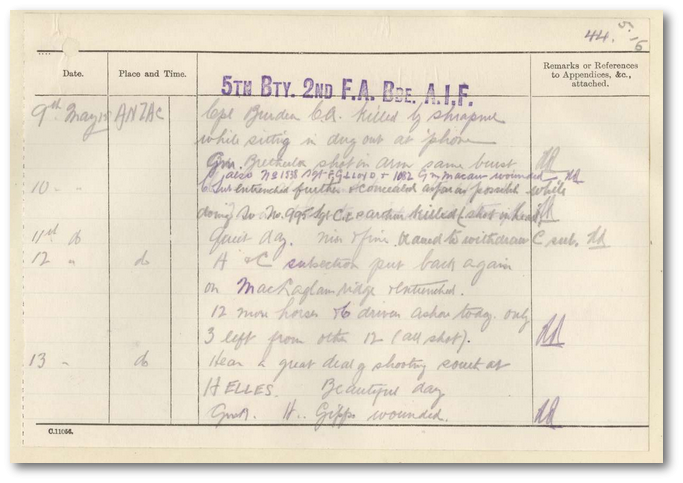 44. 5/16
Date.
Place and Time.
5TH BTY. 2ND F.A. BDE. A.I.F.
Remarks or References
to Appendices, &c.,
attached.
9th May 15 ANZAC Cpl Burden killed by shrapnel
while sitting in dug out at 'phone
Gnr. shot in arm same burst
also No 1538 LLOYD + 1082 Gnr wounded
10 " " Sub entrenched further + concealed as far as possible while
doing so No. 995 Sgt killed (shot in head)
11th do Quiet day. to withdraw C sub.
12 " do H & C subsection put back again
on MacLaglan ridge + entrenched.
12 more horses + 6 drivers ashore today. only
3 left from other 12 (all shot).
13 " do Hear a great deal of shooting south at
HELLES. Beautiful day
Gnr. H. Gipps wounded.
C.11066.